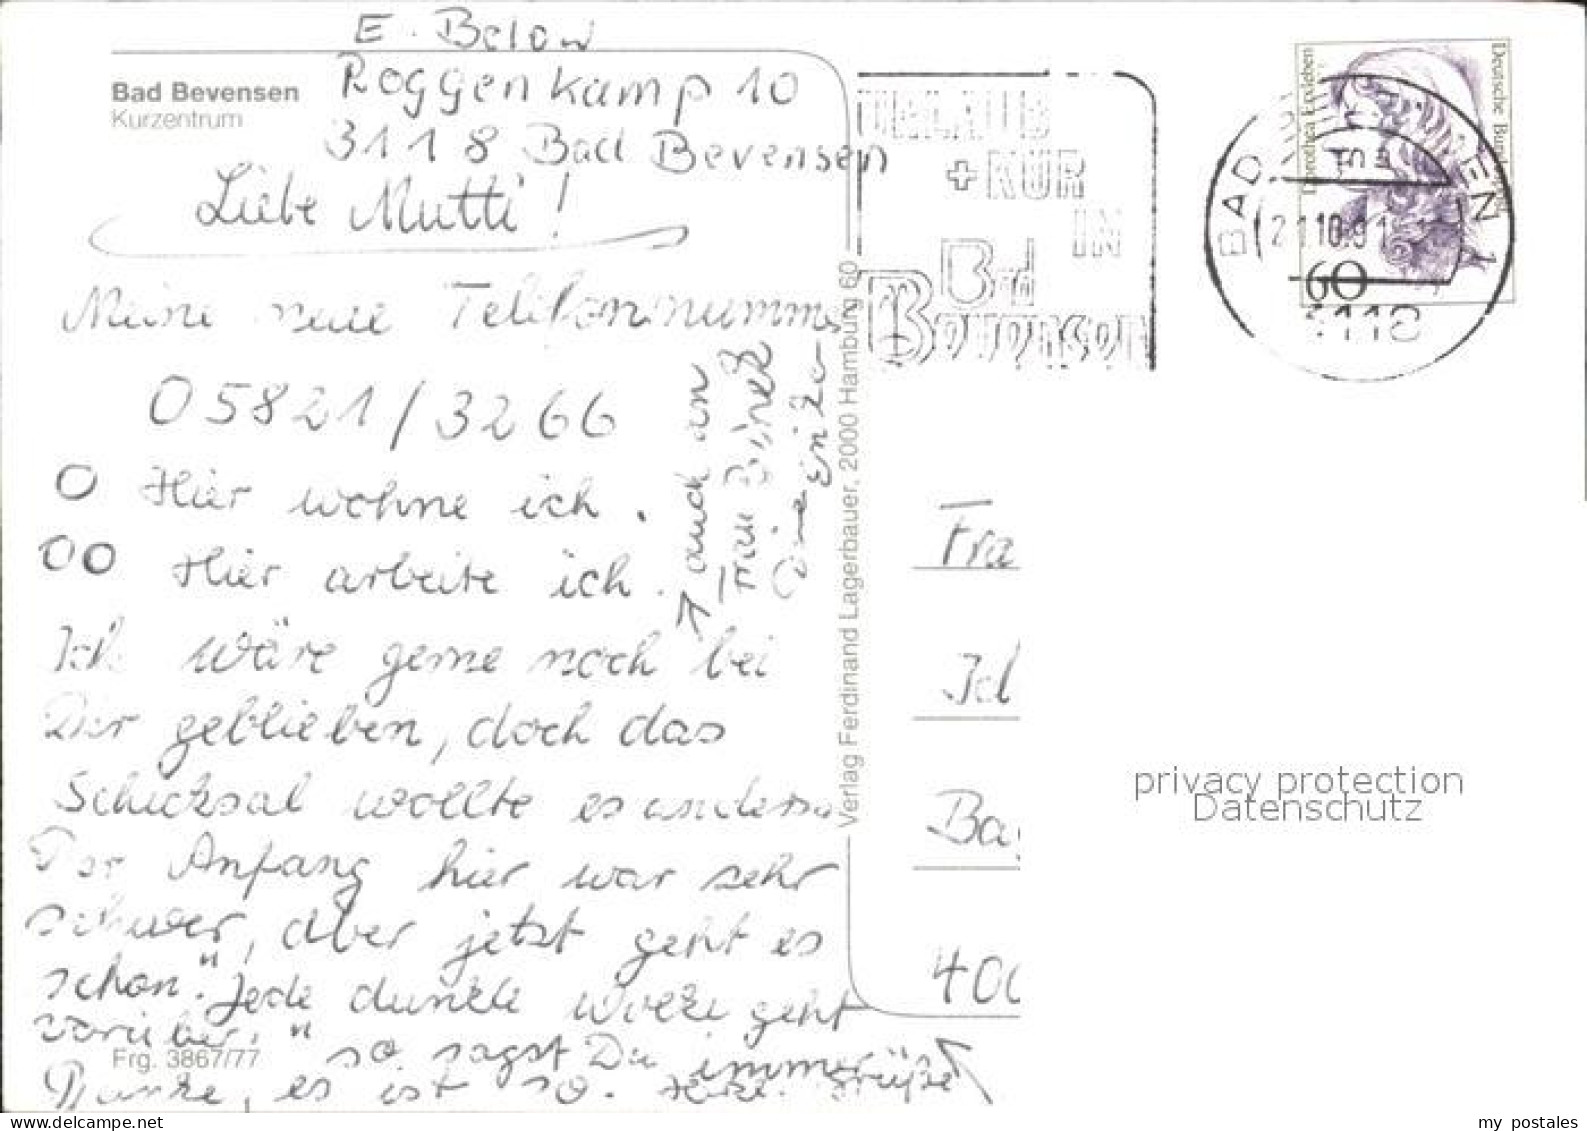 E. Below
Roggenkamp 10
3118 Bad Bevensen
Bad Bevensen
Kurzentrum
Liebe Mutti!
Meine neue Telefonnummer
05821/3266
O Hier wohne ich.
OO Hier arbeite ich.
Ich wäre gerne noch bei
Dir geblieben, doch das
Schicksal wollte es anders.
Der Anfang hier war sehr
schwer, aber jetzt geht es
schon. "Jede dunkle Wolke geht
vorüber," so sagst Du immer
Danke, es ist so. Herzl. Grüße
auch an
Frau
Frg. 3867/77
Verlag Ferdinand Lagerbauer, 2000 Hamburg 60
URLAUB
+ KUR
IN
Bad
Bevensen
BAD
EN 1
21.10.91
3118
Deutsche Bundespost
Dorothea Erxleben
60
Fra
Id
Ba
400
privacy protection
Datenschutz
my postales